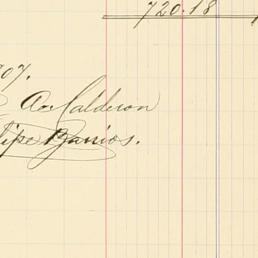 720.18
07.
A. Calderon
lipe Barrios.